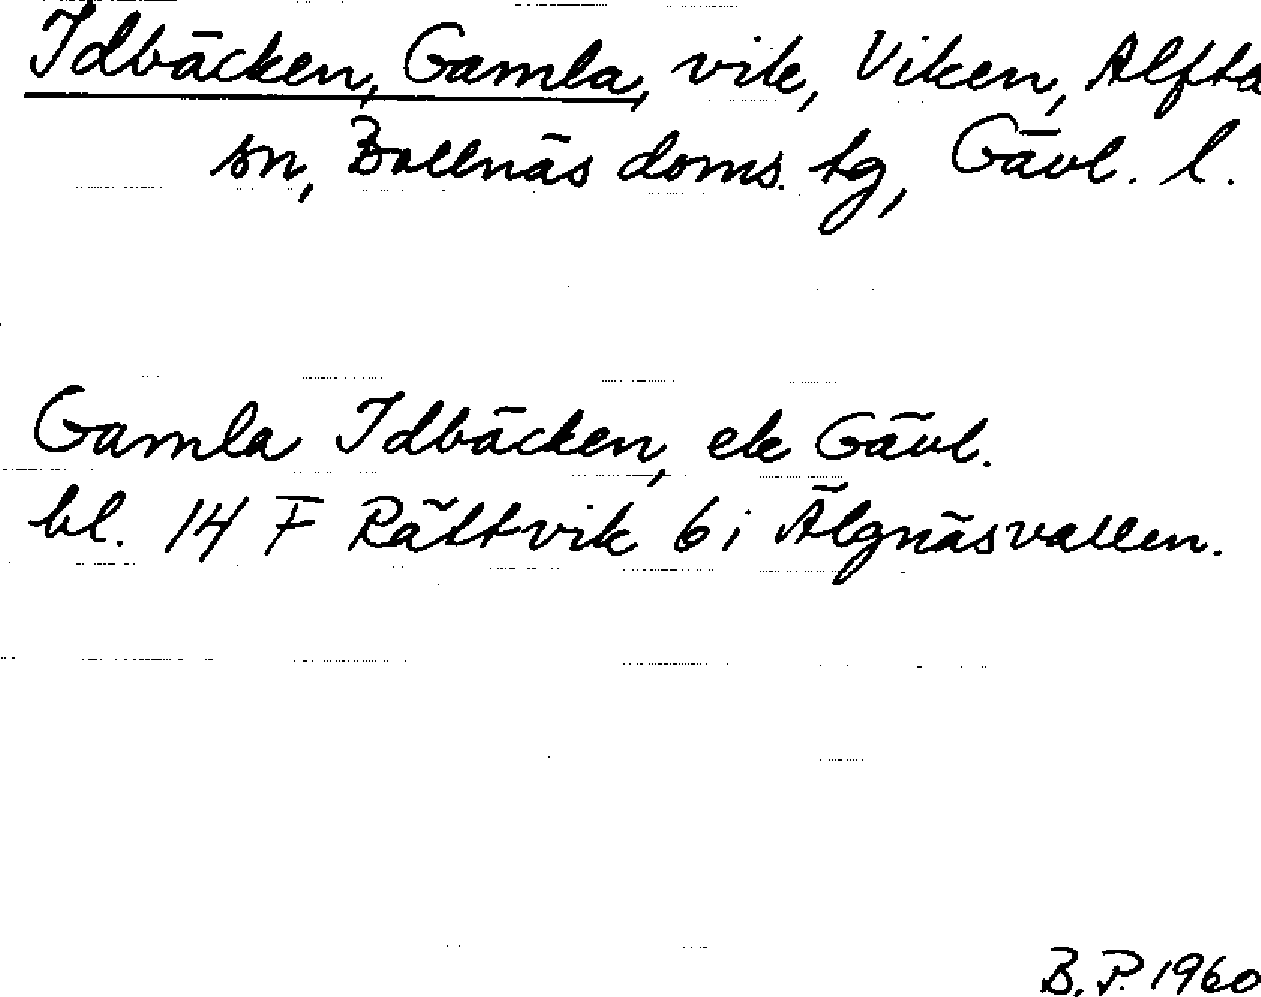 Idbäcken, Gamla, vik, Viken, Alfta
sn, Bollnäs doms. tg, Gävl. l.
Gamla Idbäcken, ek Gävl.
bl. 14 F Rättvik 6 i Älgnäsvallen.
B. P. 1960